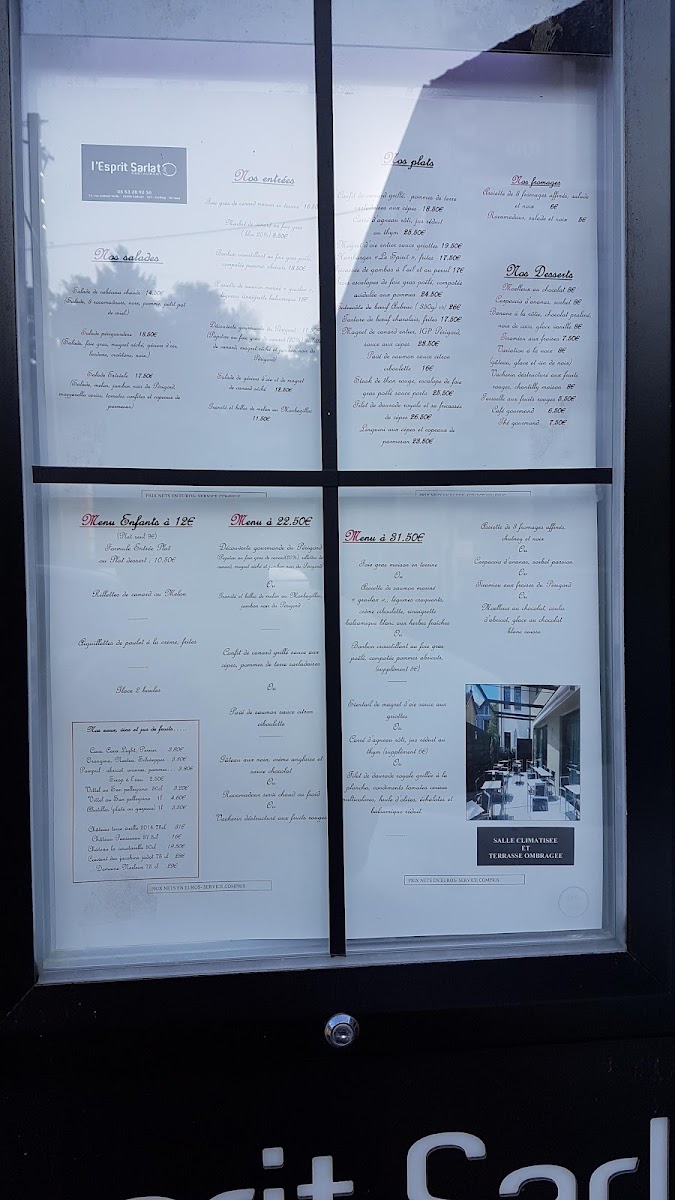 l'Esprit Sarlat
RESTAURANT
05 53 28 92 50
Nos salades
Salade de cabécou chaud 14.50€
(Salade, 3 rocamadours, noix, pomme, petit pot
de miel)
Salade périgourdine 18.50€
(Salade, foie gras, magret séché, gésiers d'oie,
lardons, croûtons, noix)
Salade Estivale 17.50€
(Salade, melon, jambon noix du Périgord,
mozzarella cerise, tomates confites et copeaux de
parmesan)
Nos entrées
Foie gras de canard maison au
Marbré de canard au foie gras
(bloc 20%) 9.50€
Bonbon croustillant au foie gras poêlé,
compotée pommes abricots
Assiette de saumon mariné « gravlax »
Découverte gourmande du Périgord
de canard, magret séché et jambon noix du
Périgord)
Salade de gésiers d'oie et de magret
de canard séché 12.50€
Granité et billes de melon au Monbazillac
11.50€
Nos plats
Confit de canard grillé, pommes de terre
sarladaises aux cèpes 18.50€
Carré d'agneau rôti, jus réduit
au thym 25.50€
Magret d'oie entier sauce griottes 19.50€
frites 17.50€
Cassolette de gambas à l'ail et au persil 17€
escalopes de foie gras poêlé, compotée
acidulée aux pommes 24.50€
Entrecôte de bœuf Aubrac (350g) 26€
Tartare de bœuf charolais, frites 17.50€
Magret de canard entier, IGP Périgord,
sauce aux cèpes 23.50€
Pavé de saumon sauce citron
ciboulette 16€
Steak de thon rouge, escalope de foie
gras poêlé sauce porto 25.50€
Filet de daurade royale et sa fricassée
de cèpes 26.50€
Linguini aux cèpes et copeaux de
parmesan 23.50€
Nos fromages
Assiette de 3 fromages affinés, salade
et noix 6€
Rocamadour, salade et noix 5€
Nos Desserts
Moelleux au chocolat 8€
Carpaccio d'ananas, sorbet 8€
Banane à la vôtre, chocolat praliné,
noix de coco, glace vanille 8€
Tiramisu aux fraises 7.50€
Variation à la noix 8€
(gâteau, glace et vin de noix)
Vacherin déstructuré aux fruits
rouges, chantilly maison 8€
Faisselle aux fruits rouges 5.50€
Café gourmand 6.50€
Thé gourmand 7.50€
PRIX NETS EN EUROS- SERVICE COMPRIS
Menu Enfants à 12€
(Plat seul 9€)
Formule Entrée Plat
ou Plat dessert : 10,50€
Rillettes de canard ou Melon
Aiguillettes de poulet à la crème, frites
Glace 2 boules
Nos eaux, vins et jus de fruits.....
Coca, Coca Light, Perrier 3.80€
Orangina, Nestea, Schweppes 3.80€
Pampryl : abricot, ananas, pomme... 3.80€
Sirop à l'eau 2.50€
Vittel ou San pellegrino 50cl 3.20€
Vittel ou San pellegrino 1l 4.60€
Abatilles (plate ou gazeuse) 1l 3.50€
Menu à 22.50€
Découverte gourmande du Périgord
de canard, magret séché et jambon noix du Périgord)
Ou
Granité et billes de melon au Monbazillac,
jambon noix du Périgord
Confit de canard grillé sauce aux
cèpes, pommes de terre sarladaises
Ou
Pavé de saumon sauce citron
ciboulette
Gâteau aux noix, crème anglaise et
sauce chocolat
Ou
Rocamadour servi chaud ou froid
Ou
Vacherin déstructuré aux fruits rouges
PRIX NETS EN EUROS- SERVICE COMPRIS
Menu à 31.50€
Foie gras maison en terrine
Ou
Assiette de saumon mariné
« gravlax », légumes croquants,
crème ciboulette, vinaigrette
balsamique blanc aux herbes fraîches
Ou
Bonbon croustillant au foie gras
poêlé, compotée pommes abricots,
(supplément 5€)
Eventail de magret d'oie sauce aux
griottes
Ou
Carré d'agneau rôti, jus réduit au
thym (supplément 5€)
Ou
Filet de daurade royale grillée à la
plancha, condiments tomates cerises
multicolores, huile d'olive, échalotes et
balsamique réduit.
Assiette de 3 fromages affinés,
chutney et noix
Ou
Carpaccio d'ananas, sorbet passion
Ou
Tiramisu aux fraises du Périgord
Ou
Moelleux au chocolat, coulis
d'abricot, glace au chocolat
blanc
SALLE CLIMATISEE
ET
TERRASSE OMBRAGEE
PRIX NETS EN EUROS- SERVICE COMPRIS
prit Sarl